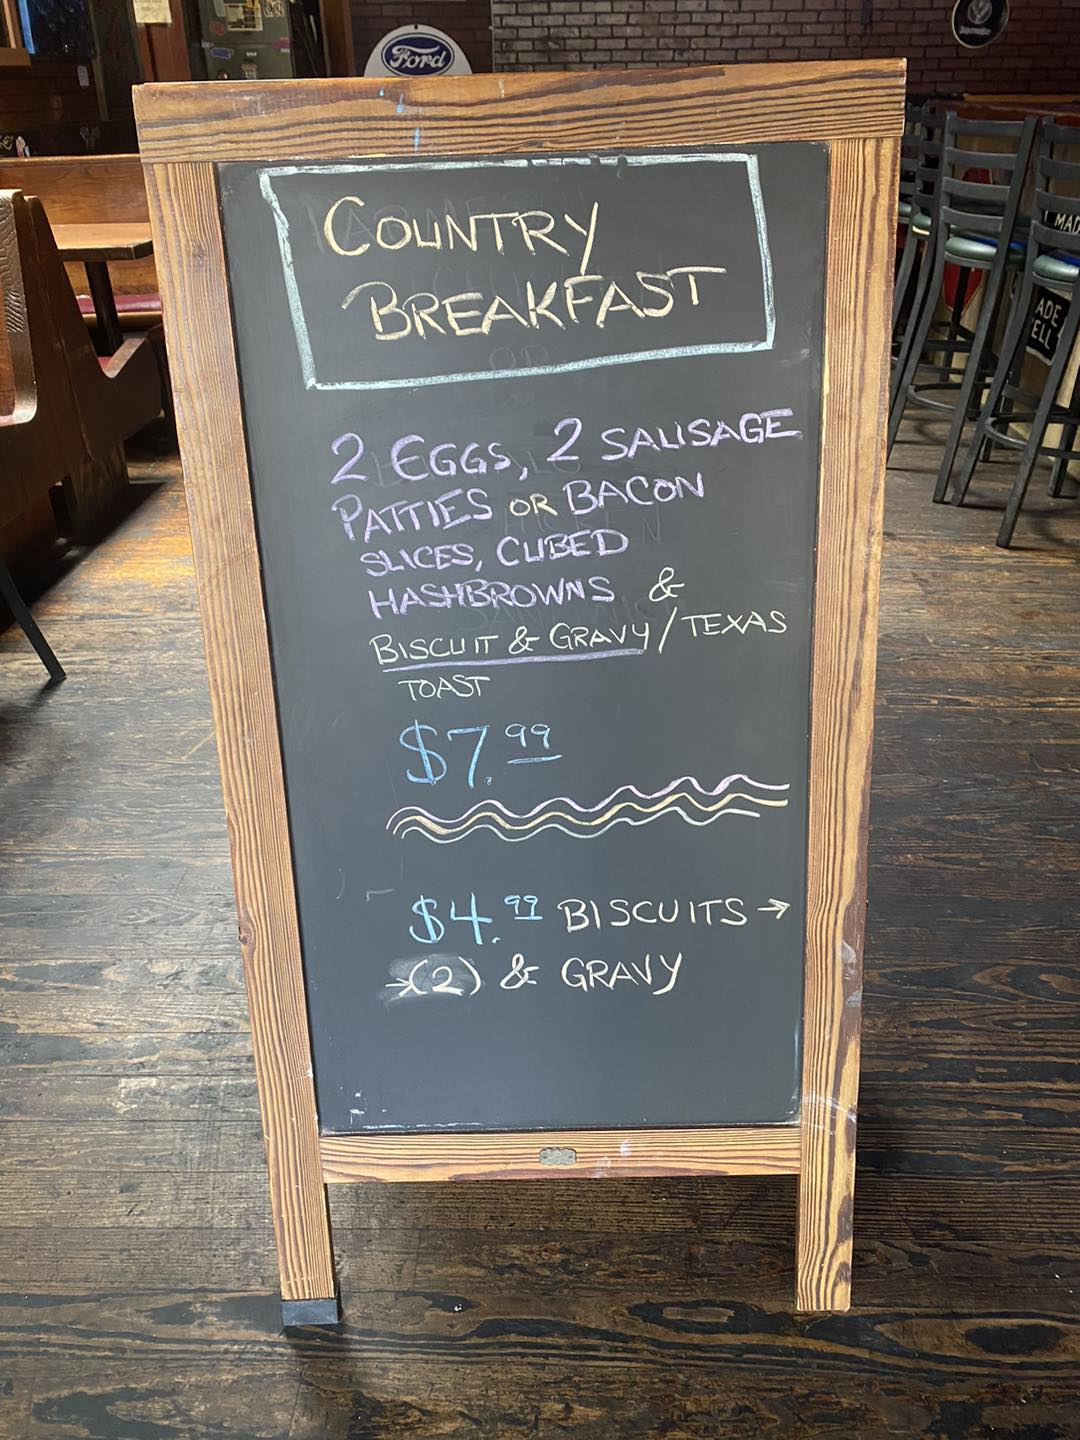 Ford
COUNTRY
BREAKFAST
2 EGGS, 2 SAUSAGE
PATTIES OR BACON
SLICES, CUBED
HASHBROWNS &
BISCUIT & GRAVY/TEXAS
TOAST
$7.99
$4.99 BISCUITS →
→(2) & GRAVY
MAD
ADE
ELL